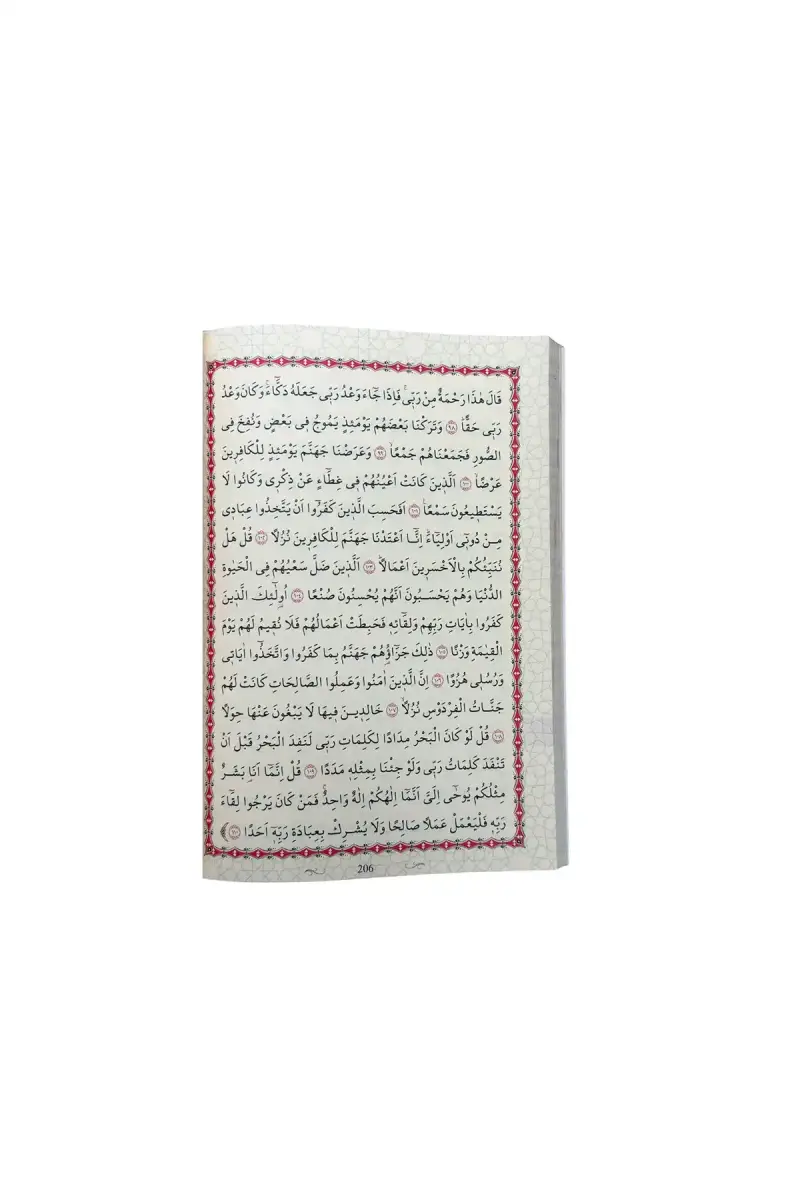 قَالَ هٰذَا رَحْمَةٌ مِنْ رَبّٖيۚ فَاِذَا جَٓاءَ وَعْدُ رَبّٖي جَعَلَهُ دَكَّٓاءَۚ وَكَانَ وَعْدُ
رَبّٖي حَقًّاۜ ﴿٩٨﴾ وَتَرَكْنَا بَعْضَهُمْ يَوْمَئِذٍ يَمُوجُ فٖي بَعْضٍ وَنُفِخَ فِي
الصُّورِ فَجَمَعْنَاهُمْ جَمْعًاۙ ﴿٩٩﴾ وَعَرَضْنَا جَهَنَّمَ يَوْمَئِذٍ لِلْكَافِرٖينَ
عَرْضًاۙ ﴿١٠٠﴾ اَلَّذٖينَ كَانَتْ اَعْيُنُهُمْ فٖي غِطَٓاءٍ عَنْ ذِكْرٖي وَكَانُوا لَا
يَسْتَطٖيعُونَ سَمْعًاۜ ﴿١٠١﴾ اَفَحَسِبَ الَّذٖينَ كَفَرُٓوا اَنْ يَتَّخِذُوا عِبَادٖي
مِنْ دُونٖٓي اَوْلِيَٓاءَۜ اِنَّٓا اَعْتَدْنَا جَهَنَّمَ لِلْكَافِرٖينَ نُزُلًا ﴿١٠٢﴾ قُلْ هَلْ
نُنَبِّئُكُمْ بِالْاَخْسَرٖينَ اَعْمَالًاۜ ﴿١٠٣﴾ اَلَّذٖينَ ضَلَّ سَعْيُهُمْ فِي الْحَيٰوةِ
الدُّنْيَا وَهُمْ يَحْسَبُونَ اَنَّهُمْ يُحْسِنُونَ صُنْعًا ﴿١٠٤﴾ اُو۬لٰٓئِكَ الَّذٖينَ
كَفَرُوا بِاٰيَاتِ رَبِّهِمْ وَلِقَٓائِهٖ فَحَبِطَتْ اَعْمَالُهُمْ فَلَا نُقٖيمُ لَهُمْ يَوْمَ
الْقِيٰمَةِ وَزْنًا ﴿١٠٥﴾ ذٰلِكَ جَزَٓاؤُ۬هُمْ جَهَنَّمُ بِمَا كَفَرُوا وَاتَّخَذُٓوا اٰيَاتٖي
وَرُسُلٖي هُزُوًا ﴿١٠٦﴾ اِنَّ الَّذٖينَ اٰمَنُوا وَعَمِلُوا الصَّالِحَاتِ كَانَتْ لَهُمْ
جَنَّاتُ الْفِرْدَوْسِ نُزُلًاۙ ﴿١٠٧﴾ خَالِدٖينَ فٖيهَا لَا يَبْغُونَ عَنْهَا حِوَلًا
﴿١٠٨﴾ قُلْ لَوْ كَانَ الْبَحْرُ مِدَادًا لِكَلِمَاتِ رَبّٖي لَنَفِدَ الْبَحْرُ قَبْلَ اَنْ
تَنْفَدَ كَلِمَاتُ رَبّٖي وَلَوْ جِئْنَا بِمِثْلِهٖ مَدَدًا ﴿١٠٩﴾ قُلْ اِنَّمَٓا اَنَا۬ بَشَرٌ
مِثْلُكُمْ يُوحٰٓى اِلَيَّ اَنَّمَٓا اِلٰهُكُمْ اِلٰهٌ وَاحِدٌۚ فَمَنْ كَانَ يَرْجُوا لِقَٓاءَ
رَبِّهٖ فَلْيَعْمَلْ عَمَلًا صَالِحًا وَلَا يُشْرِكْ بِعِبَادَةِ رَبِّهٖٓ اَحَدًا ﴿١١٠﴾
206